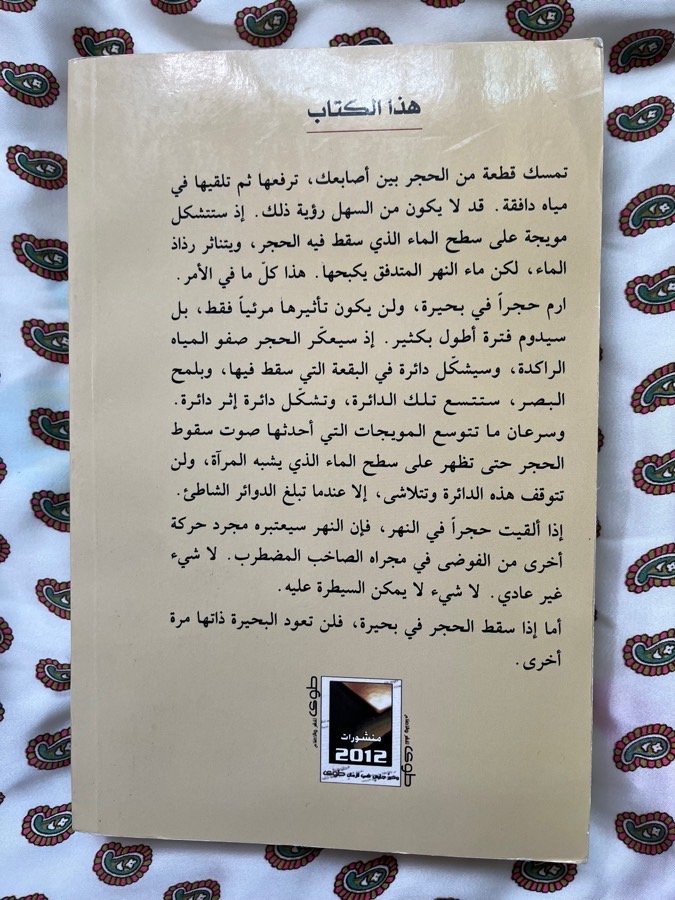 هذا الكتاب
تمسك قطعة من الحجر بين أصابعك، ترفعها ثم تلقيها في
مياه دافقة. قد لا يكون من السهل رؤية ذلك. إذ ستتشكل
مويجة على سطح الماء الذي سقط فيه الحجر، ويتناثر رذاذ
الماء، لكن ماء النهر المتدفق يكبحها. هذا كلّ ما في الأمر.
ارم حجراً في بحيرة، ولن يكون تأثيرها مرئياً فقط، بل
سيدوم فترة أطول بكثير. إذ سيعكّر الحجر صفو المياه
الراكدة، وسيشكّل دائرة في البقعة التي سقط فيها، وبلمح
البصر، ستتسع تلك الدائرة، وتشكّل دائرة إثر دائرة.
وسرعان ما تتوسع المويجات التي أحدثها صوت سقوط
الحجر حتى تظهر على سطح الماء الذي يشبه المرآة، ولن
تتوقف هذه الدائرة وتتلاشى، إلا عندما تبلغ الدوائر الشاطئ.
إذا ألقيت حجراً في النهر، فإن النهر سيعتبره مجرد حركة
أخرى من الفوضى في مجراه الصاخب المضطرب. لا شيء
غير عادي. لا شيء لا يمكن السيطرة عليه.
أما إذا سقط الحجر في بحيرة، فلن تعود البحيرة ذاتها مرة
أخرى.
طوى
منشورات
2012
طوى
طوى